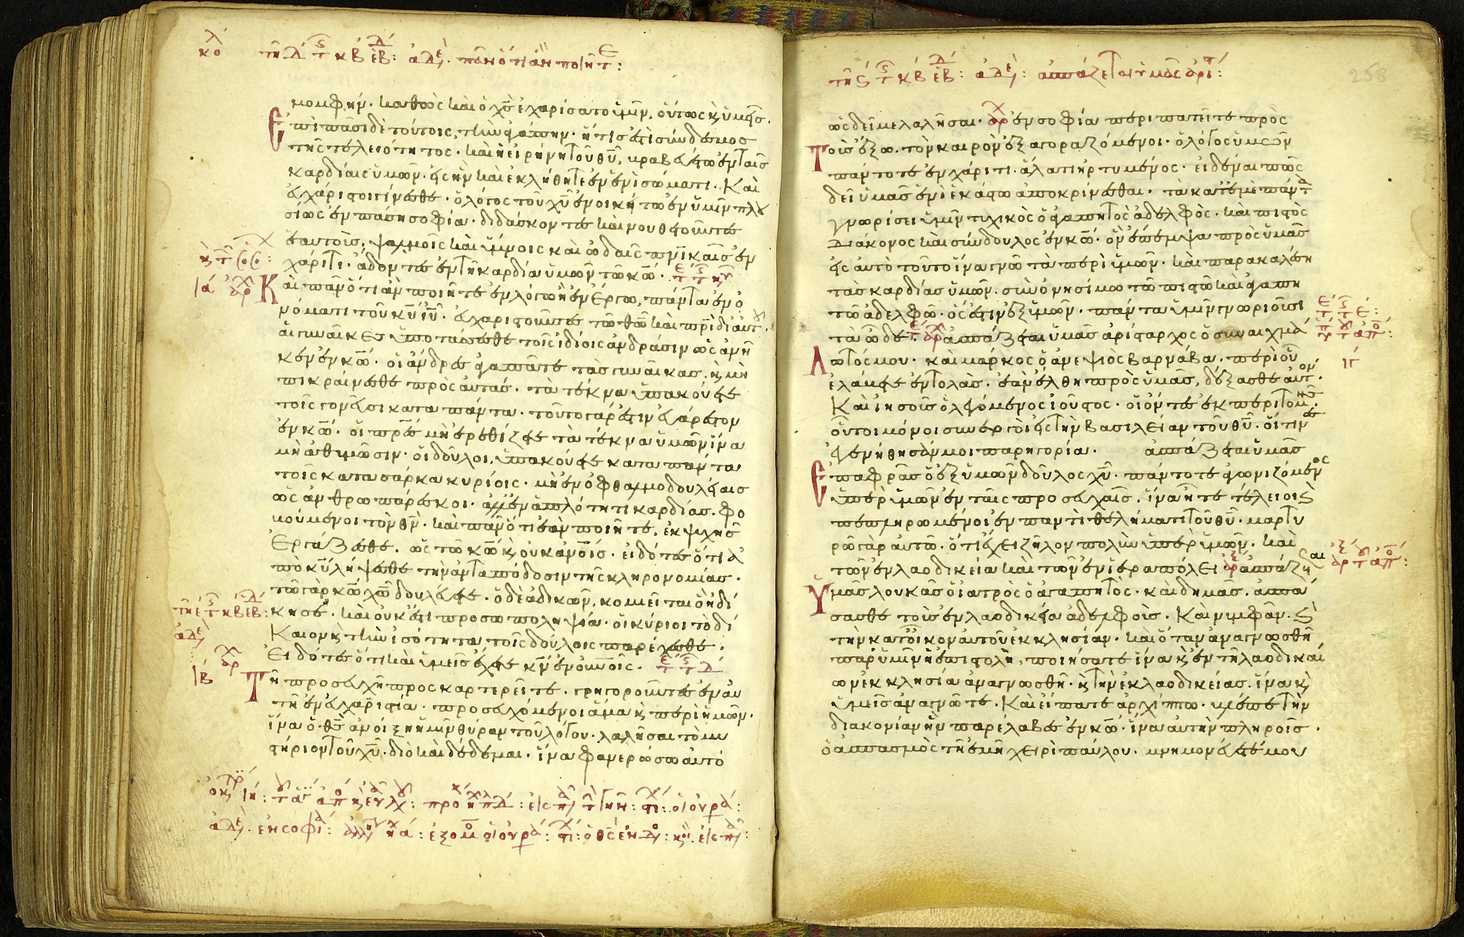 μομφήν· καθὼς καὶ ὁ χ̅ς̅ ἐχαρίσατο ὑμῖν, οὕτως κ̀ ὑμεῖς·
Ἐπὶ πᾶσι δὲ τούτοις, τὴν ἀγάπην· ἥτις ἐστὶ σύνδεσμος
τῆς τελειότητος· καὶ ἡ εἰρήνη τοῦ θ̅υ̅, βραβευέτω ἐν ταῖς
καρδίαις ὑμῶν· εἰς ἣν καὶ ἐκλήθητε ἐν ἑνὶ σώματι. Καὶ
εὐχάριστοι γίνεσθε· ὁ λόγος του χ̅υ̅ ἐνοικείτω ἐν ὑμῖν πλου
σίως ἐν πάση σοφία· διδάσκοντες καὶ νουθετοῦντες
ἑαυτοὺς, ψαλμοῖς καὶ ὕμνοις καὶ ὠδαῖς π̅ν̅ικαῖς ἐν
χάριτι· ἄδοντες ἐν τῆ καρδία ὑμῶν τῶ κ̅ω̅·
Καὶ πᾶν ὅτι ἂν ποιῆτε ἐν λόγω ἢ ἐν ἔργω, πάντα ἐν ὀ
νόματι τοῦ κ̅υ̅ ι̅υ̅· εὐχαριστοῦντες τῶ θ̅ω̅ καὶ π̅ρ̅ι̅ δι' αὐτοῦ·
αἱ γυναῖκες ὑποτάσσεσθε τοῖς ἰδίοις ἀνδράσιν ὡς ἀνῆ
κεν ἐν κ̅ω̅· οἱ ἄνδρες ἀγαπᾶτε τὰς γυναῖκας. κ̀ μὴ
πικραίνεσθε πρὸς αὐτάς· τὰ τέκνα ὑπακούετε
τοῖς γονεῦσι κατα πάντα· τοῦτο γάρ ἐστιν εὐάρεστον
ἐν κ̅ω̅· οἱ π̅ρ̅ε̅ς̅ μὴ ἐρεθίζετε τὰ τέκνα ὑμῶν ἵνα
μὴ ἀθυμῶσιν· οἱ δοῦλοι, ὑπακούετε κατα πάντα
τοῖς κατα σάρκα κυρίοις· μὴ ἐν ὀφθαλμοδουλείαις
ὡς ἀνθρωπάρεσκοι· ἀλλ' ἐν ἁπλότητι καρδίας. φο
βούμενοι τὸν θ̅ν̅· καὶ πᾶν ὅτι ἐὰν ποιῆτε, ἐκ ψυχῆς
ἐργάζεσθε. ὡς τῶ κ̅ω̅ κ̀ οὐκ α̅ν̅ο̅ις· εἰδότες ὅτι ἀ
πο κ̅υ̅ λήψεσθε τὴν ἀνταπόδοσιν τῆς κληρονομίας·
τῶ γὰρ κ̅ω̅ χ̅ω̅ δουλεύετε. ὁ δὲ ἀδικῶν, κομιεῖται ὃ ἠδί
κησε· καὶ οὐκ ἔστι προσωποληψία· οἱ κύριοι τὸ δί
καιον κ̀ τὴν ἰσότητα τοῖς δούλοις παρέχεσθε·
Εἰδότες ὅτι καὶ ὑμεῖς ἔχετε κ̅ν̅ ἐν ο̅υ̅νοῖς·
Τῆ προσευχῆ προσκαρτερεῖτε· γρηγοροῦντες ἐν αὐ
τῆ ἐν εὐχαριστία· προσευχόμενοι ἅμα κ̀ περὶ ἡμῶν·
ἵνα ὁ θ̅ς̅ ἀνοίξη ἡμῖν θύραν τοῦ λόγου· λαλῆσαι τὸ μυ
στήριον τοῦ χ̅υ̅· διὸ καὶ δέδεμαι· ἵνα φανερώσω αὐτό
258
ὡς δεῖ με λαλῆσαι· ἐν σοφία περιπατεῖτε πρὸς
Τοὺς ἔξω. τὸν καιρὸν ἐξαγοραζόμενοι· ὁ λόγος ὑμῶν
πάντοτε ἐν χάριτι· ἅλατι ἠρτυμένος· εἰδέναι πῶς
δεῖ ὑμᾶς ἑνὶ ἑκάστω ἀποκρίνεσθαι· τὰ κατ' ἐμὲ πάντα
γνωρίσει ὑμῖν τυχικὸς ὁ ἀγαπητὸς ἀδελφὸς· καὶ πιστὸς
διάκονος καὶ σύνδουλος ἐν κ̅ω̅· ὃν ἔπεμψα πρὸς ὑμᾶς
εἰς αὐτὸ τοῦτο ἵνα γνῶ τὰ περὶ ὑμῶν· καὶ παρακαλέση
τὰς καρδίας ὑμῶν· σὺν ὀνησίμω τῶ πιστῶ καὶ ἀγαπη
τῶ ἀδελφῶ· ὅς ἐστιν ἐξ ὑμῶν· πάντα ὑμῖν γνωριοῦσι
τὰ ὧδε· ἀσπάζεται ὑμᾶς ἀρίσταρχος ὁ συναιχμά
λωτός μου· καὶ μάρκος ὁ ἀνεψιὸς βαρνάβα. περὶ οὗ
ἐλάβετε ἐντολάς· ἐὰν ἔλθη πρὸς ὑμᾶς, δέξασθε αὐτόν·
Καὶ ἰησοῦς ὁ λεγόμενος ἰοῦστος· οἱ ὄντες ἐκ περιτομῆς
οὗτοι μόνοι συνεργοὶ εἰς τὴν βασιλείαν τοῦ θ̅υ̅· οἵτιν
ἐγενήθησάν μοι παρηγορία· ἀσπάζεται ὑμᾶς
Ἐπαφρᾶς ὁ ἐξ ὑμῶν δοῦλος χ̅υ̅· πάντοτε ἀγωνιζόμενος
ὑπὲρ ὑμῶν ἐν ταῖς προσευχαῖς. ἵνα ἦτε τέλειοι κ̀
πεπληρωμένοι ἐν παντὶ θελήματι τοῦ θ̅υ̅· μαρτυ
ρῶ γὰρ αὐτῶ· ὅτι ἔχει ζῆλον πολὺν ὑπὲρ ὑμῶν. καὶ
τῶν ἐν λαοδικεία καὶ τῶν ἐν ἱεραπόλει· ἀσπάζεται
Ὑμᾶς λουκᾶς ὁ ἰατρὸς ὁ ἀγαπητὸς· καὶ δημᾶς. ἀσπά
σασθε τοὺς ἐν λαοδικεία ἀδελφοὺς· Καὶ νυμφᾶν· κ̀
τὴν κατ' οἶκον αὐτοῦ ἐκκλησίαν· καὶ ὅταν ἀναγνωσθῆ
παρ' ὑμῖν ἡ ἐπιστολὴ, ποιήσατε ἵνα κ̀ ἐν τῆ λαοδικαί
ων ἐκκλησία ἀναγνωσθῆ· κ̀ τὴν ἐκ λαοδικείας. ἵνα κ̀
ὑμεῖς ἀναγνῶτε· Καὶ εἴπατε ἀρχίππω· βλέπε τὴν
διακονίαν ἣν παρέλαβες ἐν κ̅ω̅· ἵνα αὐτὴν πληροῖς·
ὁ ἀσπασμὸς τῆ ἐμῆ χειρὶ παύλου· μνημονεύετέ μου